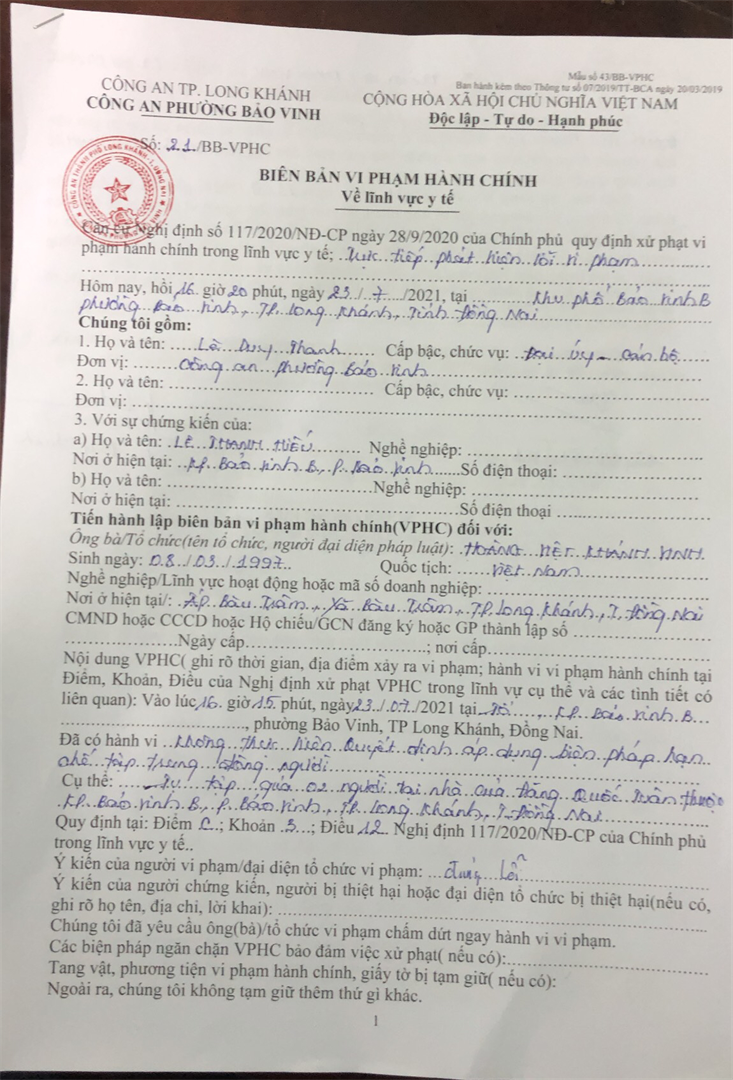 Mẫu số 43/BB-VPHC
Ban hành kèm theo Thông tư số 07/2019/TT-BCA ngày 20/03/2019
CÔNG AN TP. LONG KHÁNH
CÔNG AN PHƯỜNG BẢO VINH
CỘNG HÒA XÃ HỘI CHỦ NGHĨA VIỆT NAM
Độc lập - Tự do - Hạnh phúc
Số: 21/BB-VPHC
BIÊN BẢN VI PHẠM HÀNH CHÍNH
Về lĩnh vực y tế
Căn cứ Nghị định số 117/2020/NĐ-CP ngày 28/9/2020 của Chính phủ quy định xử phạt vi
phạm hành chính trong lĩnh vực y tế; Trực tiếp phát hiện lỗi vi phạm
Hôm nay, hồi 16 giờ 20 phút, ngày 23/7/2021, tại Khu phố Bảo Vinh B
phường Bảo Vinh, TP Long Khánh, Tỉnh Đồng Nai
Chúng tôi gồm:
1. Họ và tên: Lê Duy Thanh Cấp bậc, chức vụ: Đại úy - Cán bộ
Đơn vị: Công an phường Bảo Vinh
2. Họ và tên: Cấp bậc, chức vụ:
Đơn vị:
3. Với sự chứng kiến của:
a) Họ và tên: LÊ THANH HIẾU Nghề nghiệp:
Nơi ở hiện tại: KP. Bảo Vinh B, P. Bảo Vinh Số điện thoại:
b) Họ và tên: Nghề nghiệp:
Nơi ở hiện tại: Số điện thoại
Tiến hành lập biên bản vi phạm hành chính(VPHC) đối với:
Ông bà/Tổ chức(tên tổ chức, người đại diện pháp luật): HOÀNG VIỆT KHÁNH VINH
Sinh ngày: 08/03/1997 Quốc tịch: Việt Nam
Nghề nghiệp/Lĩnh vực hoạt động hoặc mã số doanh nghiệp:
Nơi ở hiện tại/: Ấp Bàu Trâm, Xã Bàu Trâm, TP Long Khánh, T. Đồng Nai
CMND hoặc CCCD hoặc Hộ chiếu/GCN đăng ký hoặc GP thành lập số
Ngày cấp; nơi cấp
Nội dung VPHC( ghi rõ thời gian, địa điểm xảy ra vi phạm; hành vi vi phạm hành chính tại
Điểm, Khoản, Điều của Nghị định xử phạt VPHC trong lĩnh vự cụ thể và các tình tiết có
liên quan): Vào lúc 16 giờ 15 phút, ngày 23/07/2021 tại Tổ , KP. Bảo Vinh B
, phường Bảo Vinh, TP Long Khánh, Đồng Nai.
Đã có hành vi Không thực hiện Quyết định áp dụng biện pháp hạn
chế tập trung đông người
Cụ thể: Tụ tập quá 02 người tại nhà của Đặng Quốc Tuấn thuộc
KP. Bảo Vinh B, P. Bảo Vinh, TP Long Khánh, T. Đồng Nai
Quy định tại: Điểm C; Khoản 3; Điều 12 Nghị định 117/2020/NĐ-CP của Chính phủ
trong lĩnh vực y tế..
Ý kiến của người vi phạm/đại diện tổ chức vi phạm: đúng Lỗi
Ý kiến của người chứng kiến, người bị thiệt hại hoặc đại diện tổ chức bị thiệt hại(nếu có,
ghi rõ họ tên, địa chỉ, lời khai):
Chúng tôi đã yêu cầu ông(bà)/tổ chức vi phạm chấm dứt ngay hành vi vi phạm.
Các biện pháp ngăn chặn VPHC bảo đảm việc xử phạt( nếu có):
Tang vật, phương tiện vi phạm hành chính, giấy tờ bị tạm giữ( nếu có):
Ngoài ra, chúng tôi không tạm giữ thêm thứ gì khác.
1